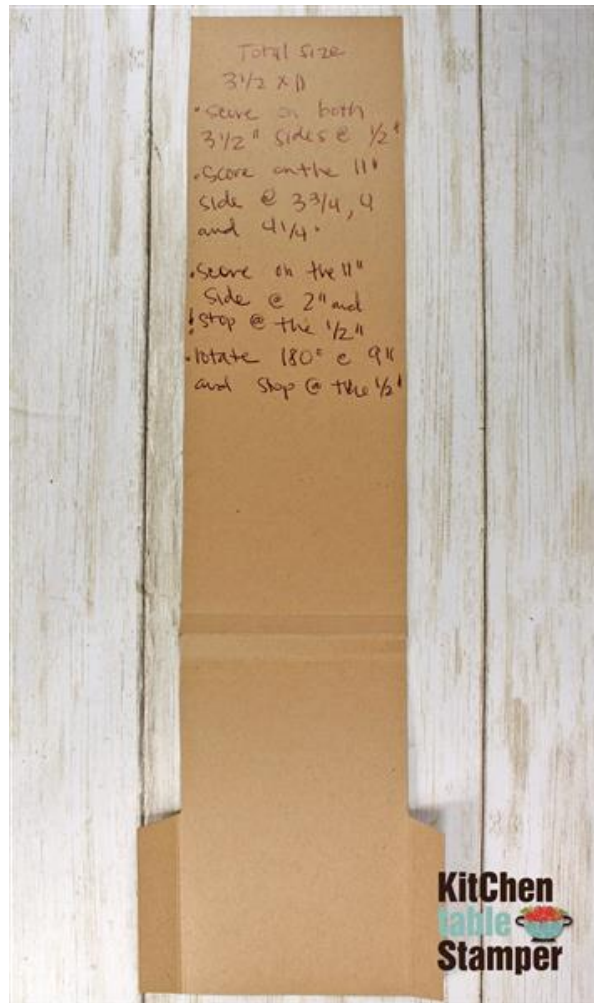 Total Size
3 1/2 x 11
• Score on both
3 1/2" sides @ 1/2"
• Score on the 11"
side @ 3 3/4, 4
and 4 1/4.
• Score on the 11"
side @ 2" and
! stop @ the 1/2"
• rotate 180° @ 9"
and stop @ the 1/2"
KitChen
table
Stamper